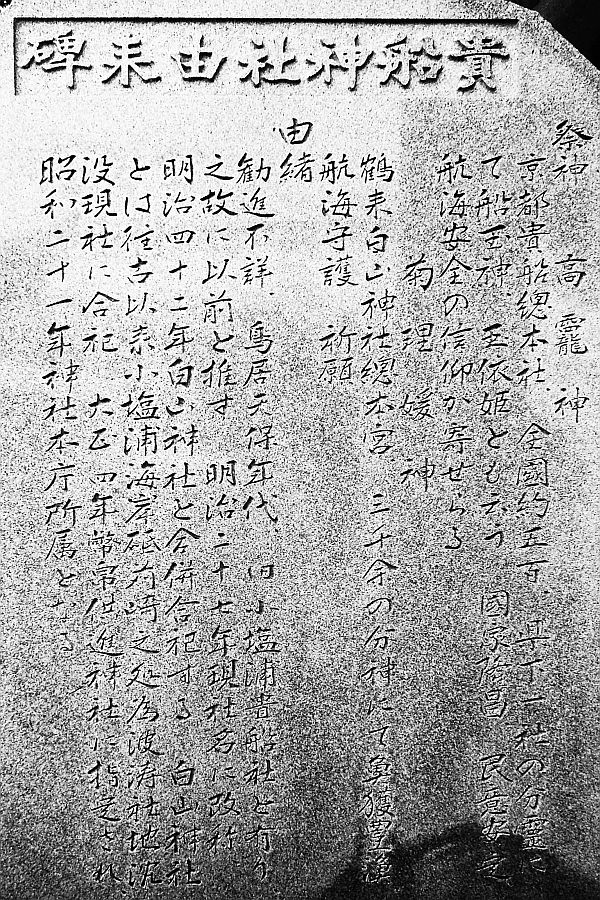 貴船神社由来碑
祭神 高靇神
京都貴船總本社、全國約五百、県下一社の分霊に
て船玉神、玉依姫とも云う 國家隆昌 民意安定
航海安全の信仰が寄せらる
菊理媛神
鶴来白山神社總本宮 三千余の分神にて 豊漁
航海守護 祈願
由緒
勧進不詳、鳥居天保年代、旧小塩浦貴船社と有り
之故に以前と推す 明治二十七年現社名に改称
明治四十二年白山神社と合併合祀する 白山神社
とは往古以来小塩浦海岸 崎之処為波涛社地流
没現社に合祀 大正四年幣帛供進神社に指定され
昭和二十一年神社本庁所属となる